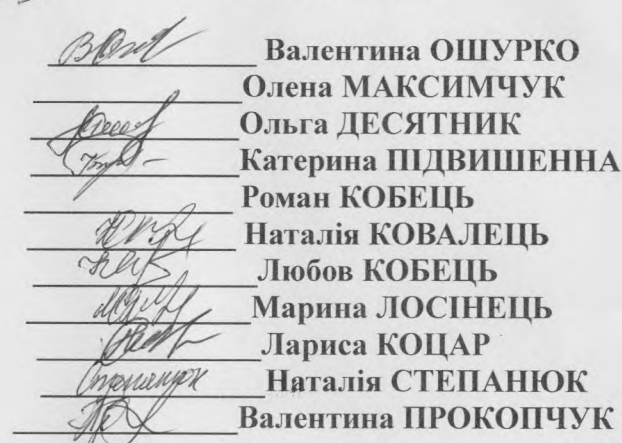 Валентина ОШУРКО
Олена МАКСИМЧУК
Ольга ДЕСЯТНИК
Катерина ПІДВИШЕННА
Роман КОБЕЦЬ
Наталія КОВАЛЕЦЬ
Любов КОБЕЦЬ
Марина ЛОСІНЕЦЬ
Лариса КОЦАР
Степанюк Наталія СТЕПАНЮК
Валентина ПРОКОПЧУК